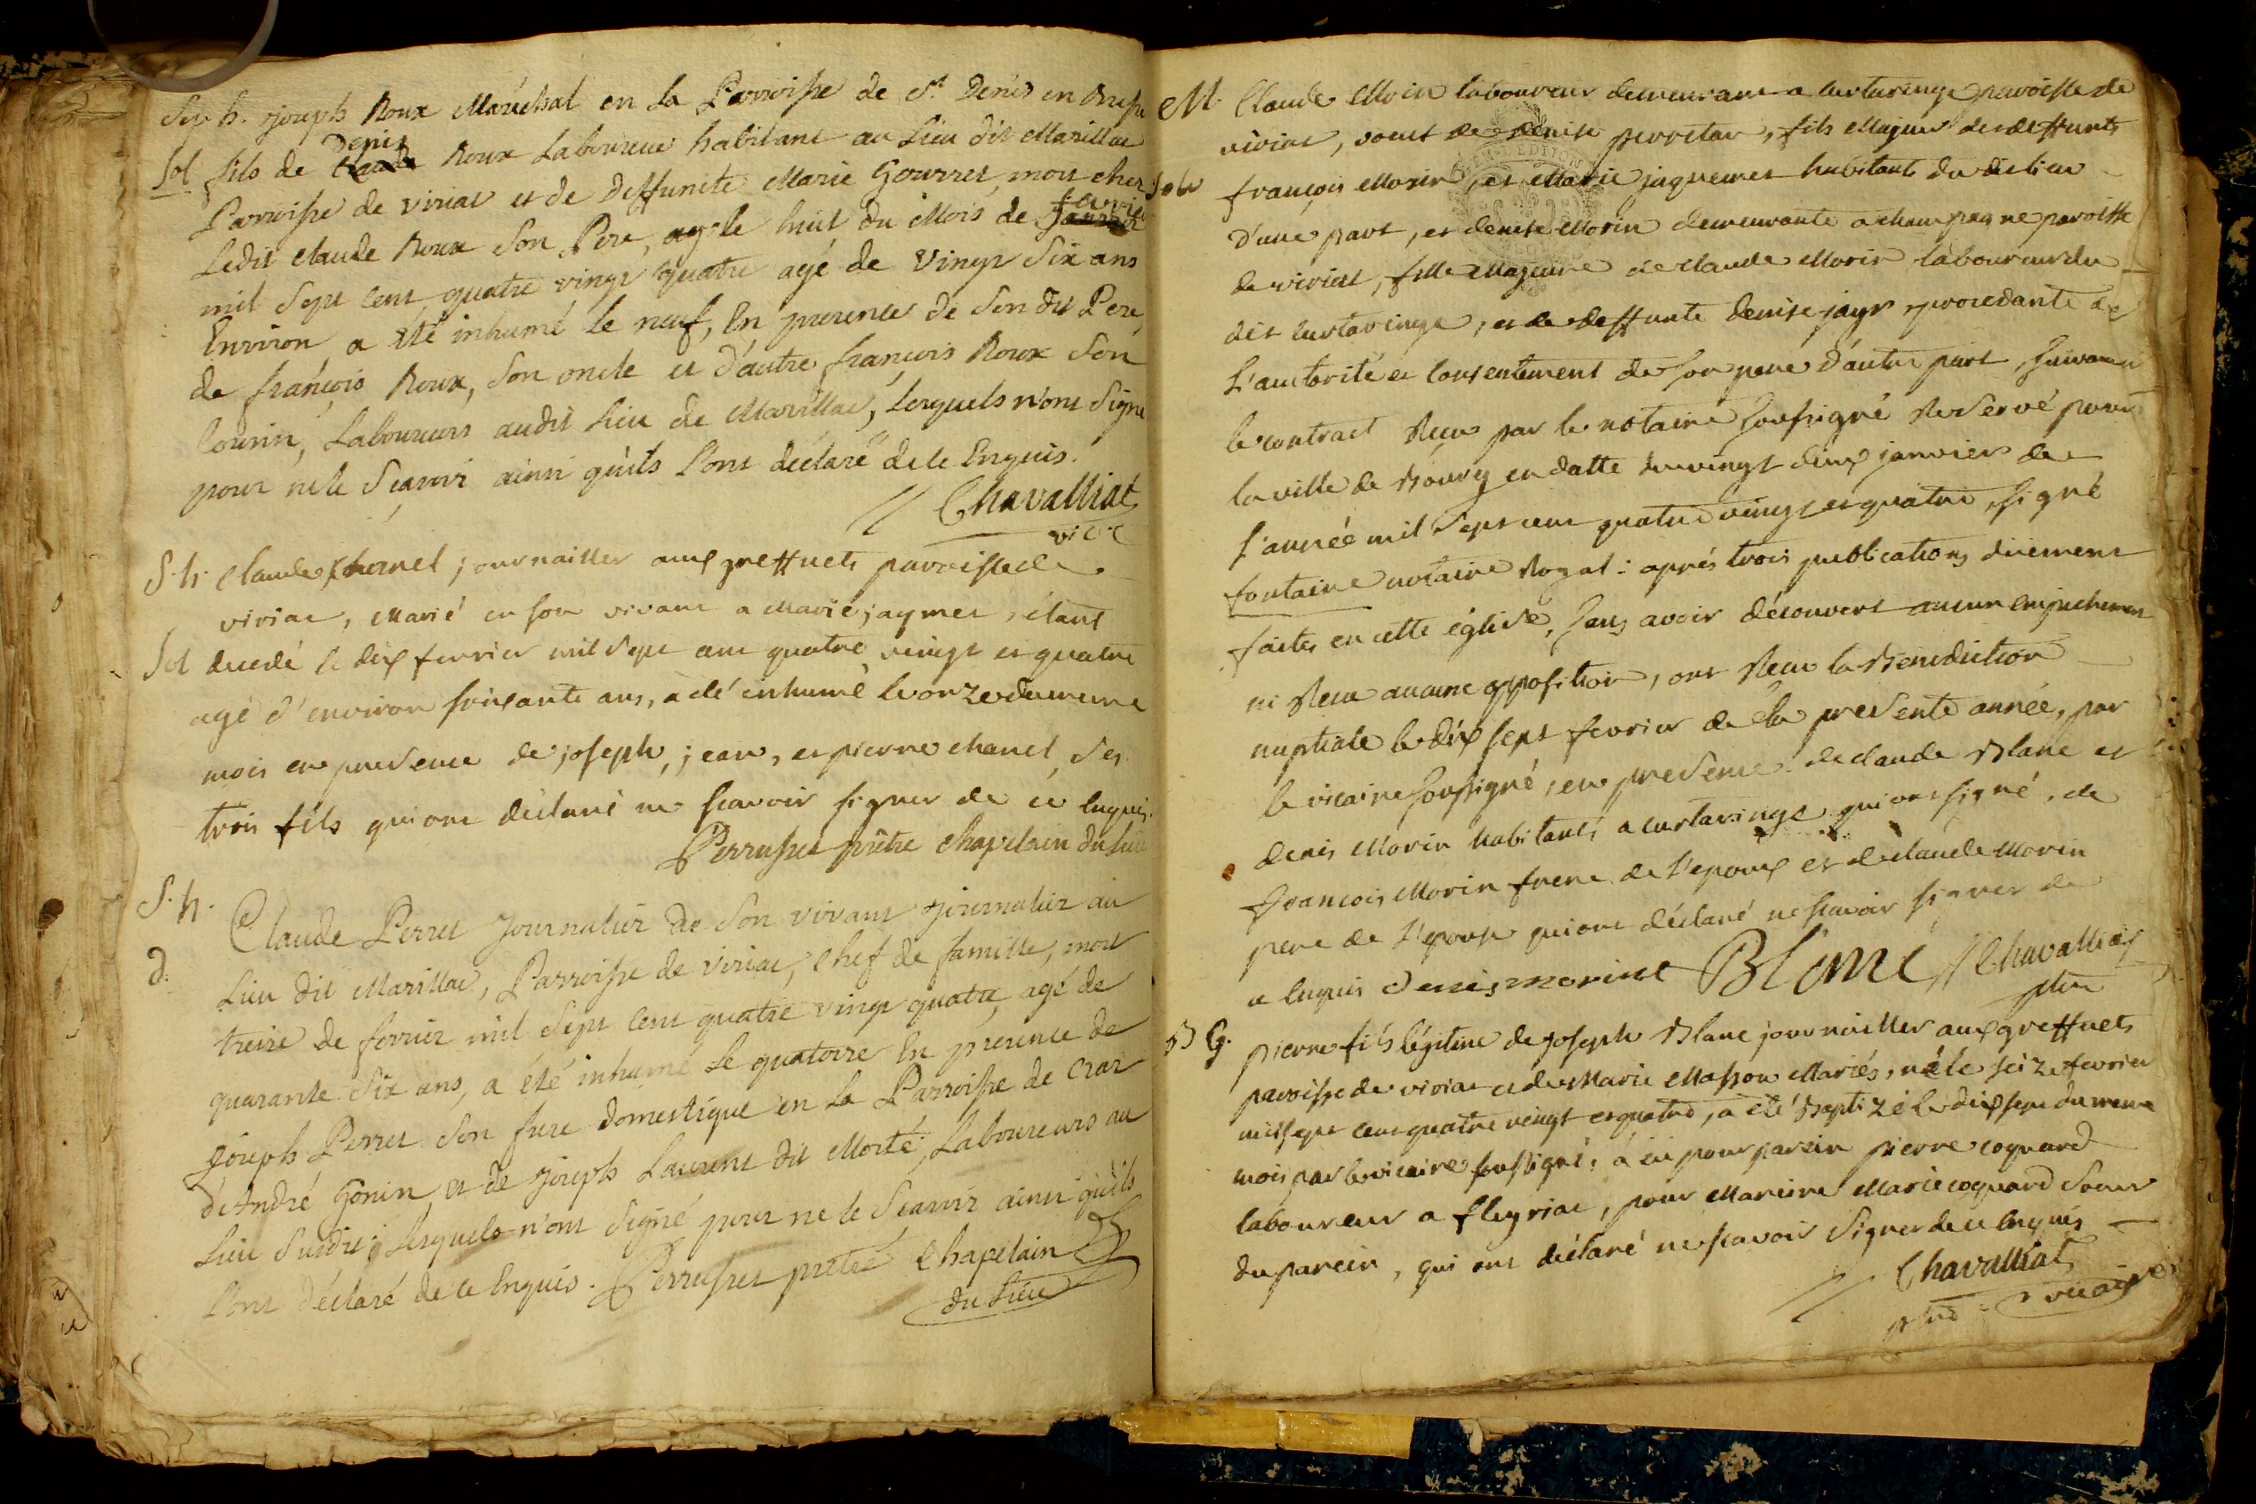 Sep. h. Joseph Roux Maréchal en la Parroisse de St. Denis en Bresse
Sol fils de Claude Denis Roux Laboureur habitant au Lieu dit Marillac
Parroisse de viriat et de deffunte Marie Gourret, mort chez
Ledit Claude Roux Son Pere, le huit du Mois de Janvier fevrier
mil Sept Cent quatre vingt quatre agé de Vingt Six ans
Environ a été inhumé le neuf, En presence de Son dit Pere,
de françois Roux, Son oncle et d'autre françois Roux Son
Cousin, Laboureurs audit Lieu de Marillac, Lesquels n'ont Signé
pour ne le Sçavoir ainsi qu'ils L'ont déclaré de ce Enquis.
Chavalliat
vic.
S. h. Claude chanel journailler aux greffets paroisse de
viriat, Marié en son vivant a Marie jaymet, étant
Sol decedé le dix fevrier mil Sept cent quatre vingt et quatre
agé d'environ soixante ans, a été inhumé le onze du meme
mois en presence de joseph, jean, et pierre chanel, Ses
trois fils qui ont déclaré ne scavoir signer de ce enquis.
Perrusset prêtre chapelain du Lieu
S. h.
d. Claude Perret Journalier de Son vivant Journalier au
Lieu dit Marillac, Parroisse de Viriat, Chef de famille, mort
treize de fevrier mil Sept Cent quatre vingt quatre, agé de
quarante Six ans, a été inhumé Le quatorze En presence de
Joseph Perret Son frere domestique en La Parroisse de Cras
d'André Gonin et de Joseph Laurent dit Morté, Laboureurs au
Lieu Susdit; Lesquels n'ont Signé pour ne le Sçavoir ainsi qu'ils
L'ont déclaré de ce Enquis. Perrusset prêtre Chapelain
du Lieu
M. Claude Morin laboureur demeurant a curtaringe paroisse de
viriat, veuf de denise perretan, fils Majeur des deffunts
françois Morin, et Marie jaquemet habitants du dit lieu
D'une part, et denise Morin demeurante a champagne paroisse
de viriat, fille Majeure de claude Morin laboureur du
dit curtaringe, et de deffunte denise jayr procedante de
L'autorité et consentement de son pere d'autre part, suivant
le contract Recu par le notaire soussigné Reservé pour
la ville de Bourg en datte du vingt deux janvier de
l'année mil Sept cent quatre vingt et quatre, signé
fontaine notaire Royal: aprés trois publications düement
faites en cette église, sans avoir découvert aucun empechement
ni Recu aucune opposition, ont Recu la Benediction
nuptiale le dix sept fevrier de la presente année, par
le vicaire soussigné, en presence de claude Blanc et
denis Morin habitants a curtaringe qui ont signé, de
françois Morin frere de l'epoux et de claude Morin
pere de l'epouse qui ont déclaré ne scavoir signer de
ce enquis denis morint Blanc Chavalliat
ptre
B G. pierre fils légitime de joseph Blanc journailler aux greffets
paroisse de viriat et de Marie Masson Mariés, né le seize fevrier
mil sept cent quatre vingt et quatre, a été Baptizé le dix sept du meme
mois par le vicaire soussigné: a eü pour parein pierre coquard
laboureur a fleyriat, pour Mareine Marie coquard Soeur
du parein, qui ont déclaré ne scavoir Signer de ce enquis
Chavalliat
ptre vicaire